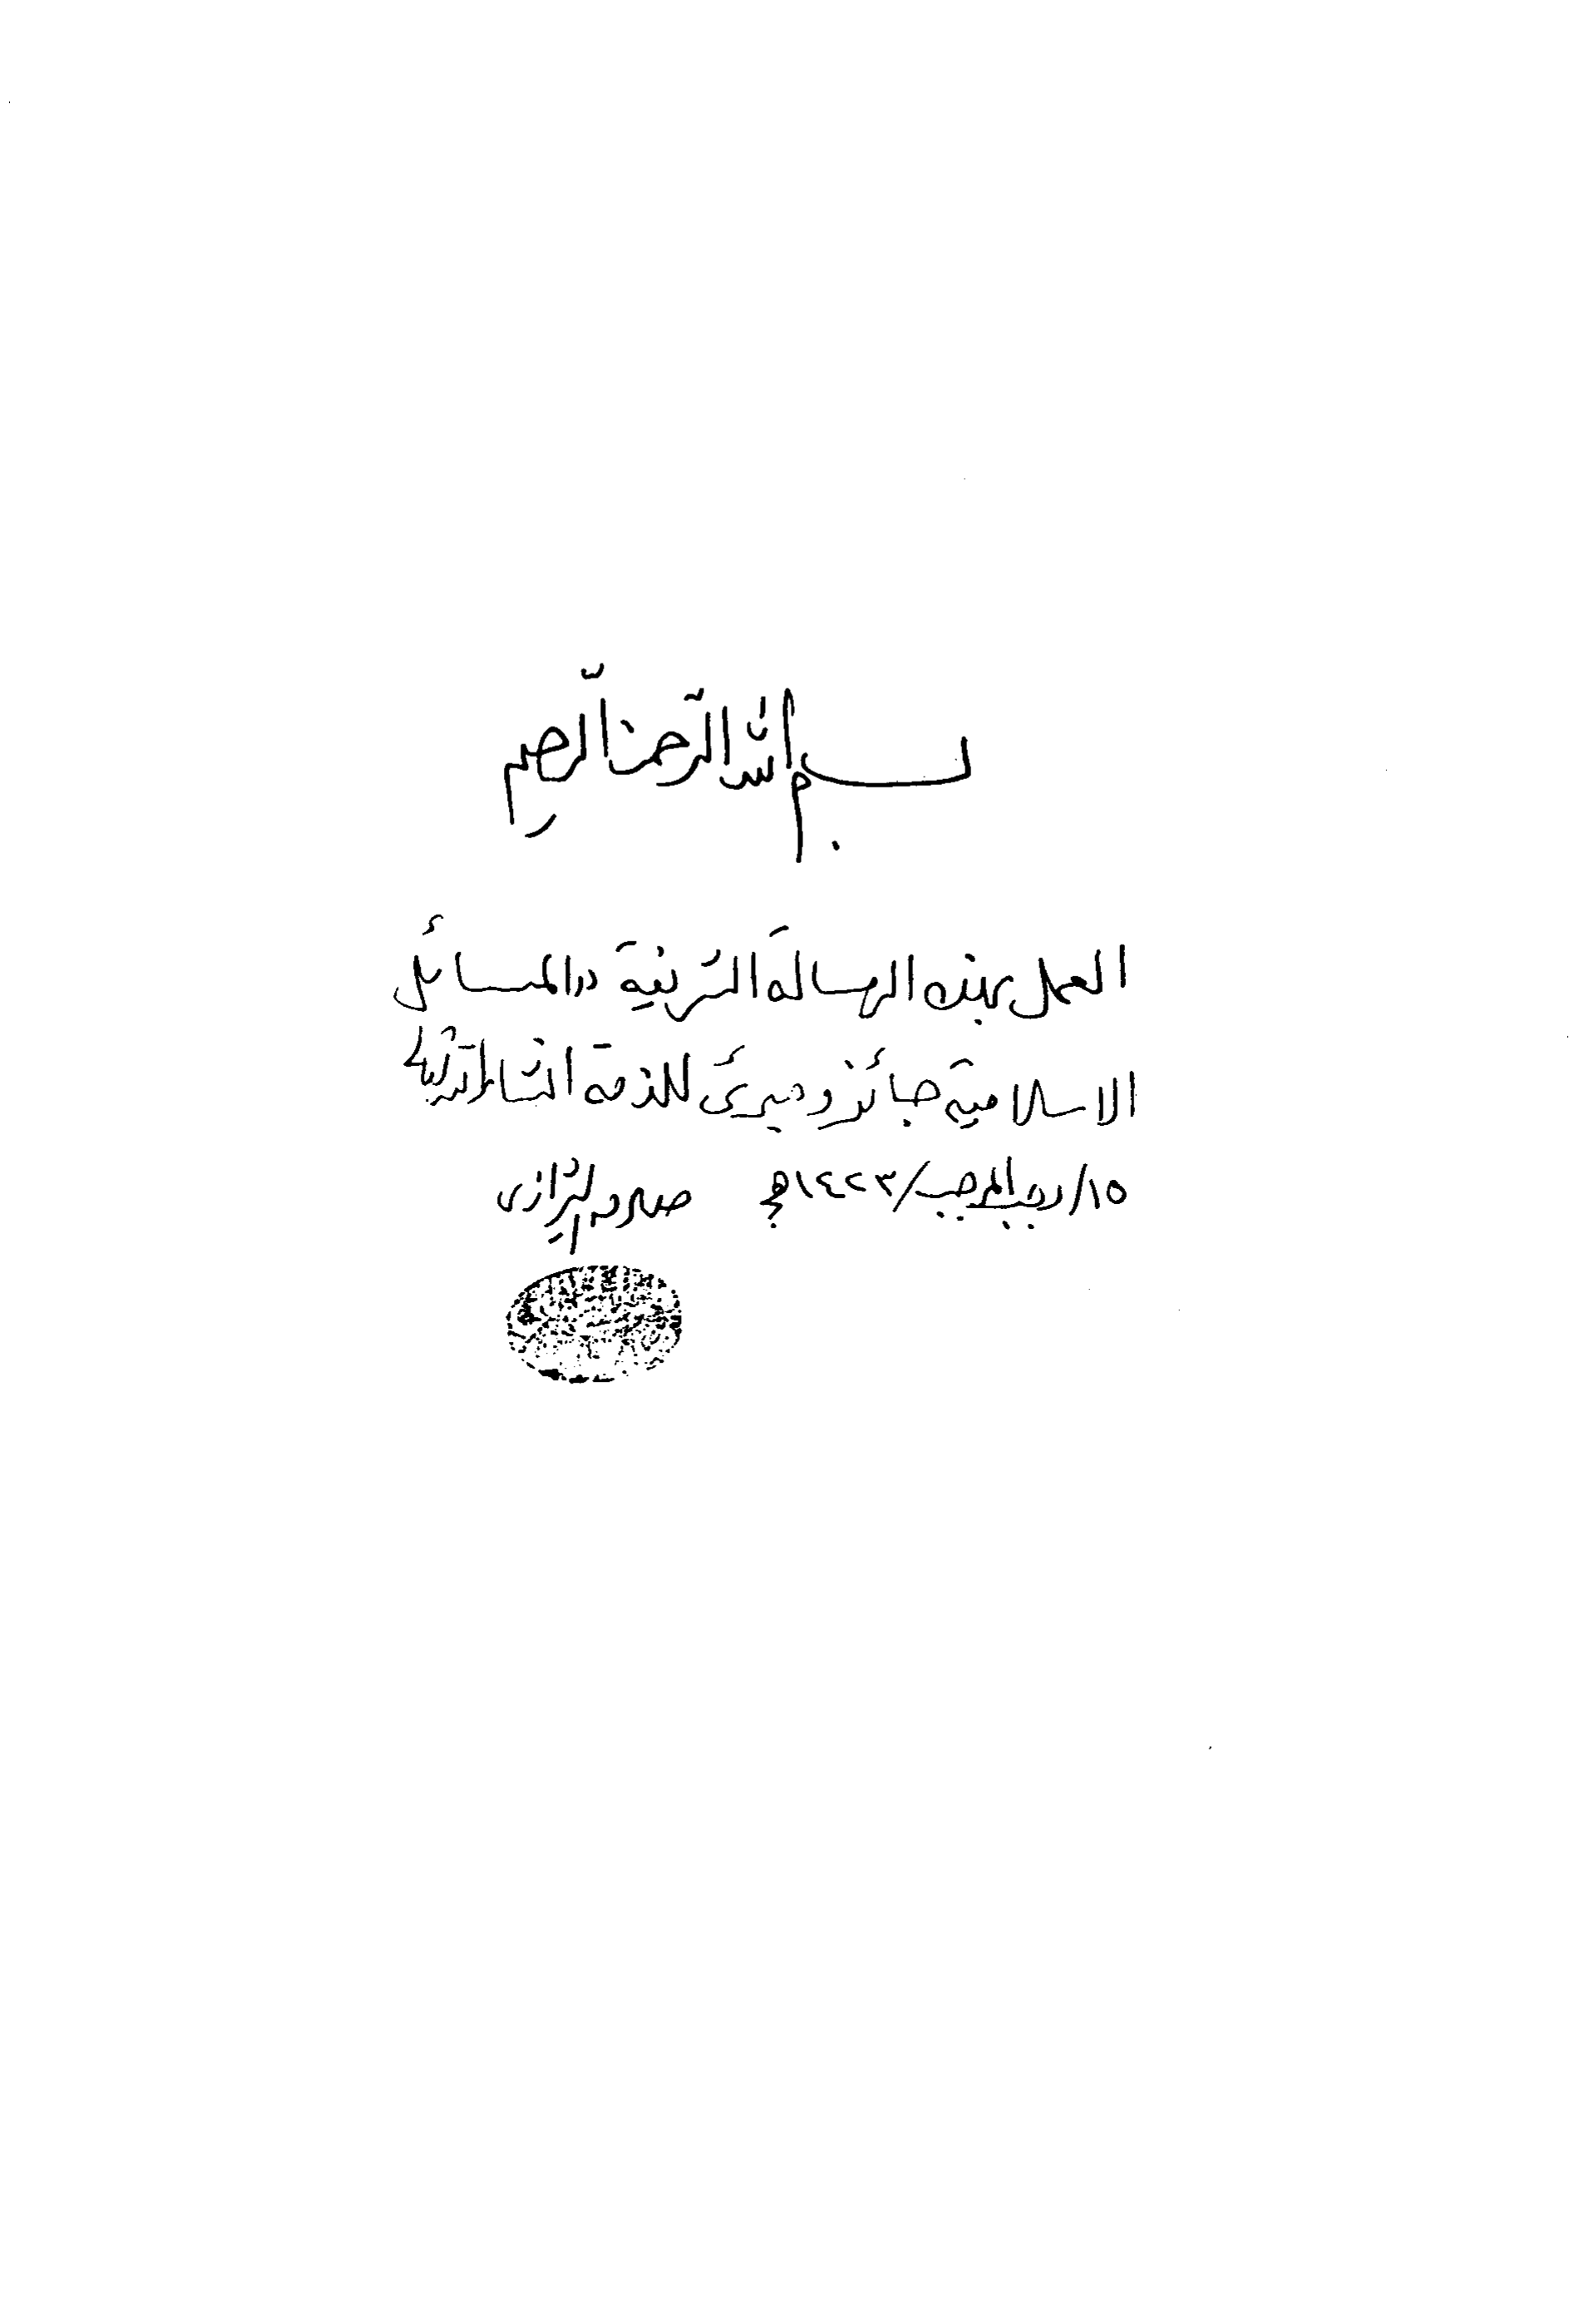 بسم الله الرّحمن الرّحيم
العمل بهذه الرسالة الشريفة «المسائل
الاسلامية» جائز ومبرئ للذمة انشاء الله تعالى
١٥/رجب المرجب/١٤٢٣هـ صادق الشيرازي